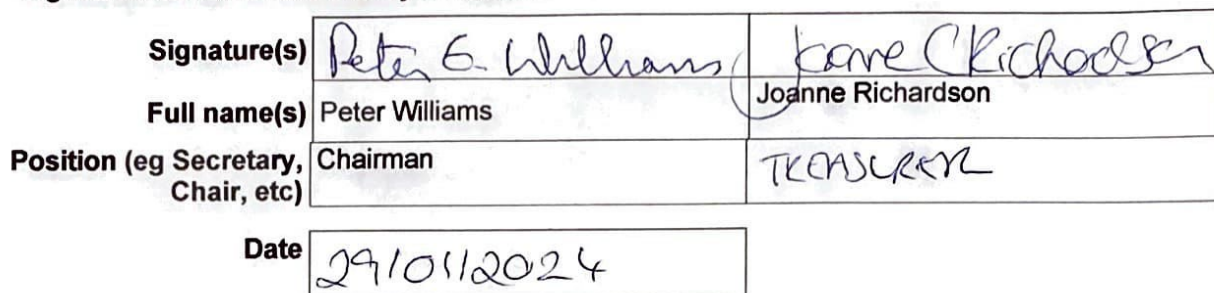 Signature(s) Peter G. Williams Joanne C Richardson
Full name(s) Peter Williams Joanne Richardson
Position (eg Secretary, Chairman TREASURER
Chair, etc)
Date 29/01/2024